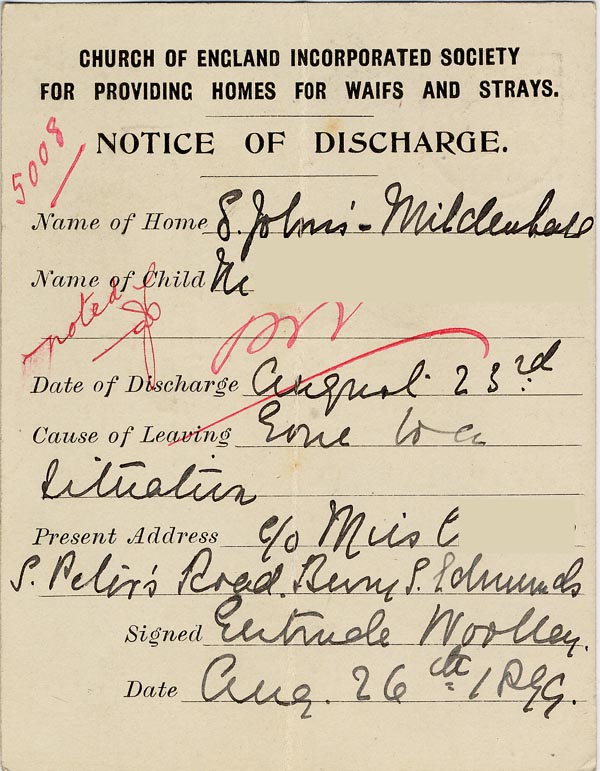 CHURCH OF ENGLAND INCORPORATED SOCIETY
FOR PROVIDING HOMES FOR WAIFS AND STRAYS.
NOTICE OF DISCHARGE.
5008
Name of Home S. John's - Mildenhall
Name of Child
noted
Date of Discharge August 23rd
Cause of Leaving Gone to a
Situation
Present Address c/o Miss C
S. Peter's Road. Bury S. Edmunds
Signed Gertrude Woolley.
Date Aug. 26th 1899.